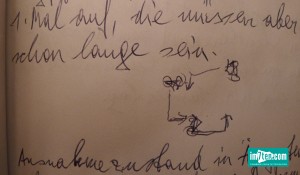 1. Mal auf, die müssen aber
schon lange sein.
Ausnahmezustand in